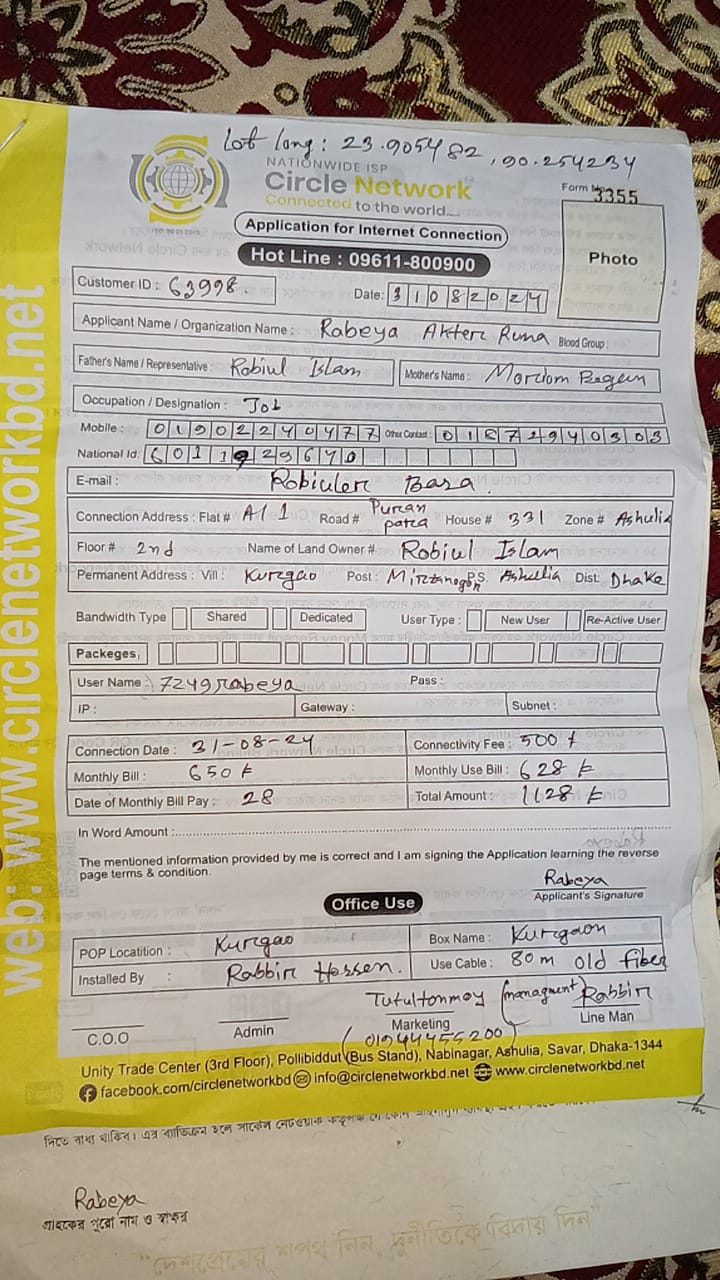 Lat long: 23.905482, 90.254234
NATIONWIDE ISP
Circle Network
Connected to the world....
ISO 9001:2015
Form No 3355
Application for Internet Connection
Photo
Hot Line : 09611-800900
Customer ID : 63998.
Date: 31082024
Applicant Name / Organization Name : Rabeya Akter Runa Blood Group :
Father's Name / Representative : Robiul Islam Mother's Name : Morciom Begum
Occupation / Designation : Job
Mobile : 01902240477 Other Contact : 01872940303
National Id: 6011929670
E-mail : Robiuler Basa.
Connection Address : Flat # A/1 Road # Puran para House # 331 Zone # Ashulia
Floor # 2nd Name of Land Owner # Robiul Islam
Permanent Address : Vill : Kurgao Post : P.S. Ashulia Dist: Dhaka
Bandwidth Type Shared Dedicated User Type : New User Re-Active User
Packeges
User Name : 7249rabeya Pass :
IP : Gateway : Subnet :
Connection Date : 31-08-24 Connectivity Fee : 500 t
Monthly Bill : 650 t Monthly Use Bill : 628 t
Date of Monthly Bill Pay : 28 Total Amount : 1128 t
In Word Amount :
The mentioned information provided by me is correct and I am signing the Application learning the reverse
page terms & condition.
Rabeya
Applicant's Signature
Office Use
POP Locatition : Kurgao Box Name : Kurgaon
Installed By : Rabbir Hossen. Use Cable : 80m old fiber
Tutultonmoy (managment) Rabbir
C.O.O Admin Marketing Line Man
(01944455200)
Unity Trade Center (3rd Floor), Pollibiddut (Bus Stand), Nabinagar, Ashulia, Savar, Dhaka-1344
facebook.com/circlenetworkbd info@circlenetworkbd.net www.circlenetworkbd.net
web: www.circlenetworkbd.net
দিতে বাধ্য থাকিব। এর ব্যতিক্রম হলে সার্কেল নেটওয়ার্ক
Rabeya
গ্রাহকের পুরো নাম ও স্বাক্ষর
"দেশপ্রেমের শপথ নিন, দুর্নীতিকে বিদায় দিন"